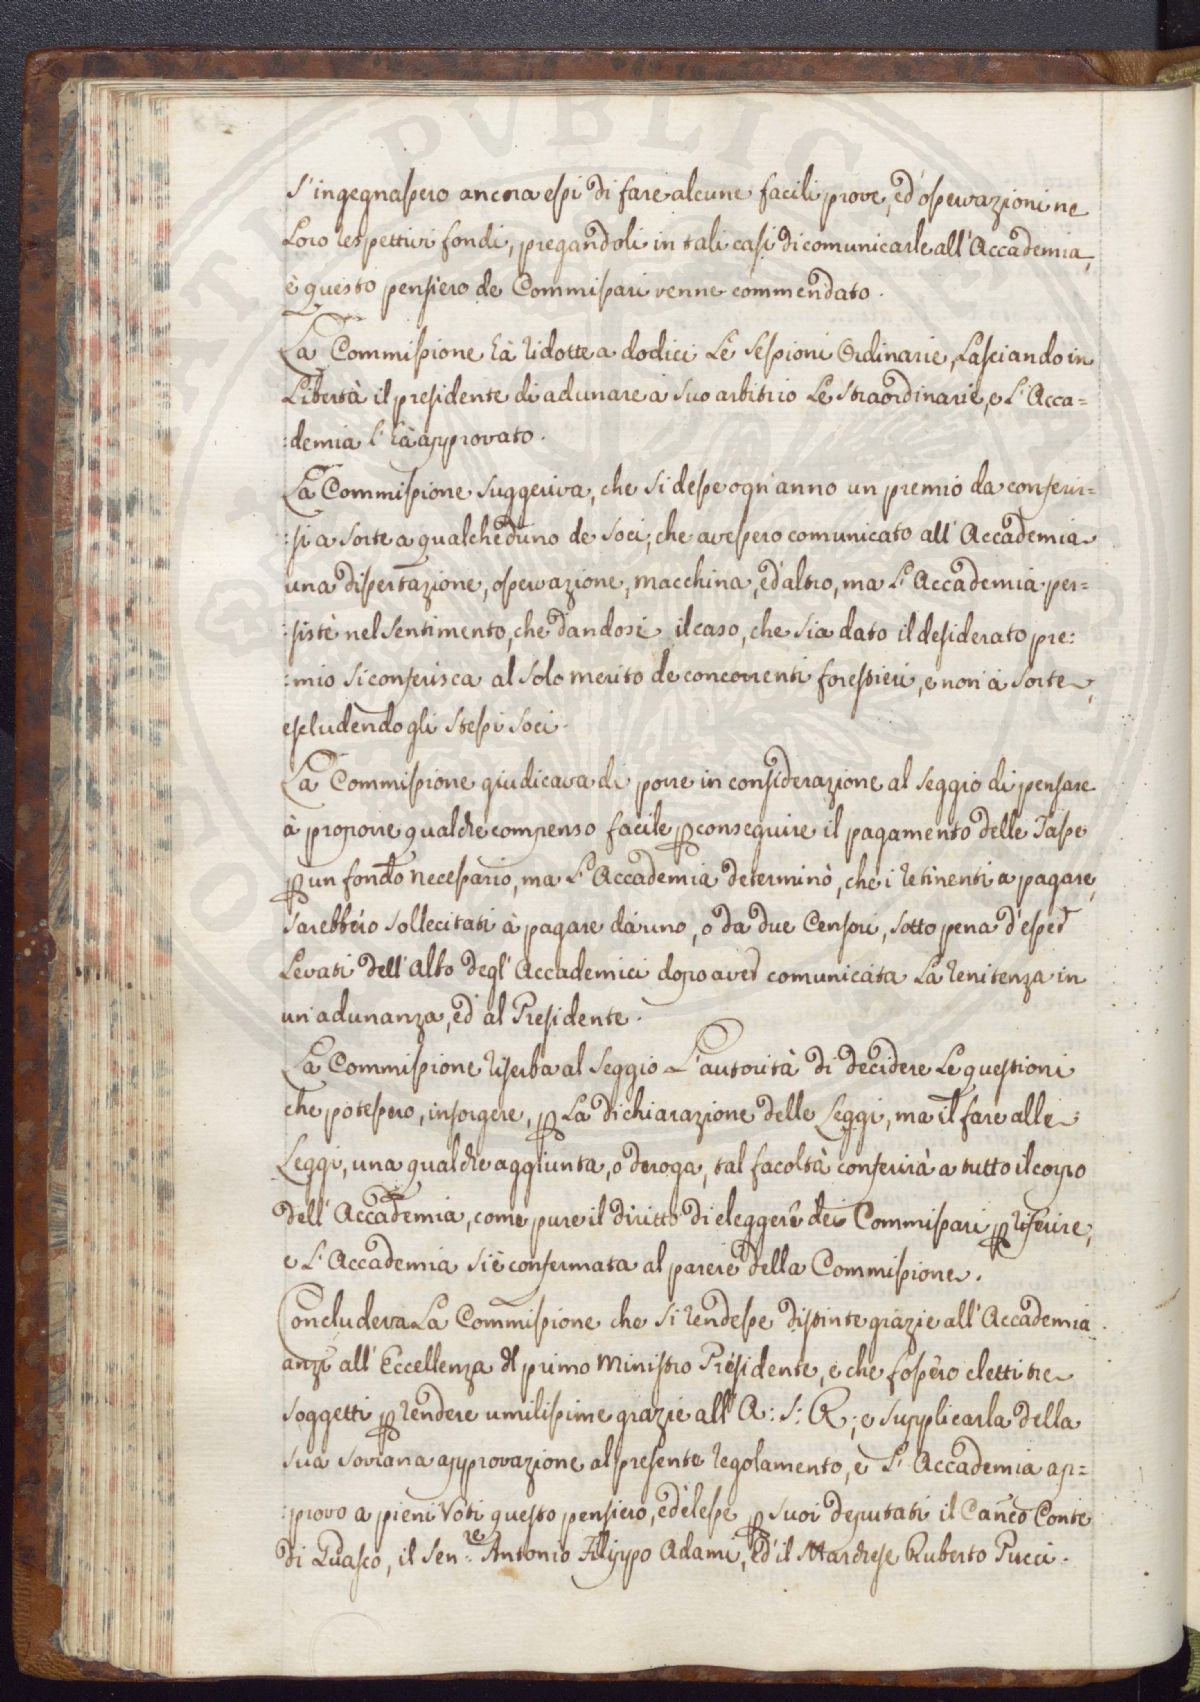 s'ingegnassero ancora essi di fare alcune facili prove, ed osservazioni ne
Loro respettivi fondi, pregandoli in tali casi di comunicarle all'Accademia,
è questo pensiero de Commissari venne commendato.
La Commissione hà ridotte a dodici Le Sessioni Ordinarie, Lasciando in
Libertà il presidente di adunare à suo arbitrio Le Straordinarie, e L'Acca=
:demia l'hà approvato.
La Commissione suggeriva, che si desse ogn'anno un premio da conferir=
:si a sorte a qualcheduno de Soci, che avessero comunicato all'Accademia
una dissertazione, osservazione, macchina, ed'altro, ma L'Accademia per=
:sistè nel sentimento, che dandosi il caso, che sia dato il desiderato pre:
:mio si conferisca al solo merito de concorrenti forestieri, e non à sorte,
escludendo gli stessi Soci.
La Commissione giudicava di porre in considerazione al Seggio di pensare
à proporre qualche compenso facile p conseguire il pagamento delle Tasse
p un fondo necessario, ma L'Accademia determinò, che i retinenti a pagare,
sarebbero sollecitati à pagare da uno, o da due Censori, sotto pena d'esser
Levati dell'Albo degl'Accademici dopo aver comunicata La renitenza in
un'adunanza, ed al Presidente.
La Commissione riserba al Seggio L'autorità di decidere Le questioni
che potessero, insorgere, p La dichiarazione delle Leggi, ma il fare alle
Leggi, una qualche aggiunta, o deroga, tal facoltà conferirà a tutto il corpo
dell'Accademia, come pure il diritto di eleggere dei Commissari p riferire,
e L'Accademia si è confermata al parere della Commissione.
Concludeva La Commissione che si rendesse distinte grazie all'Accademia
anzi all'Eccellenza del primo Ministro Presidente, e che fossero eletti tre
soggetti p rendere umilissime grazie all'A: S: R:, e supplicarla della
sua sovrana approvazione al presente regolamento, e L'Accademia ap=
:provo a pieni Voti questo pensiero, ed elesse p suoi deputati il Canco Conte
di Guasco, il Sen:re Antonio Filippo Adami, ed'il Marchese Ruberto Pucci.